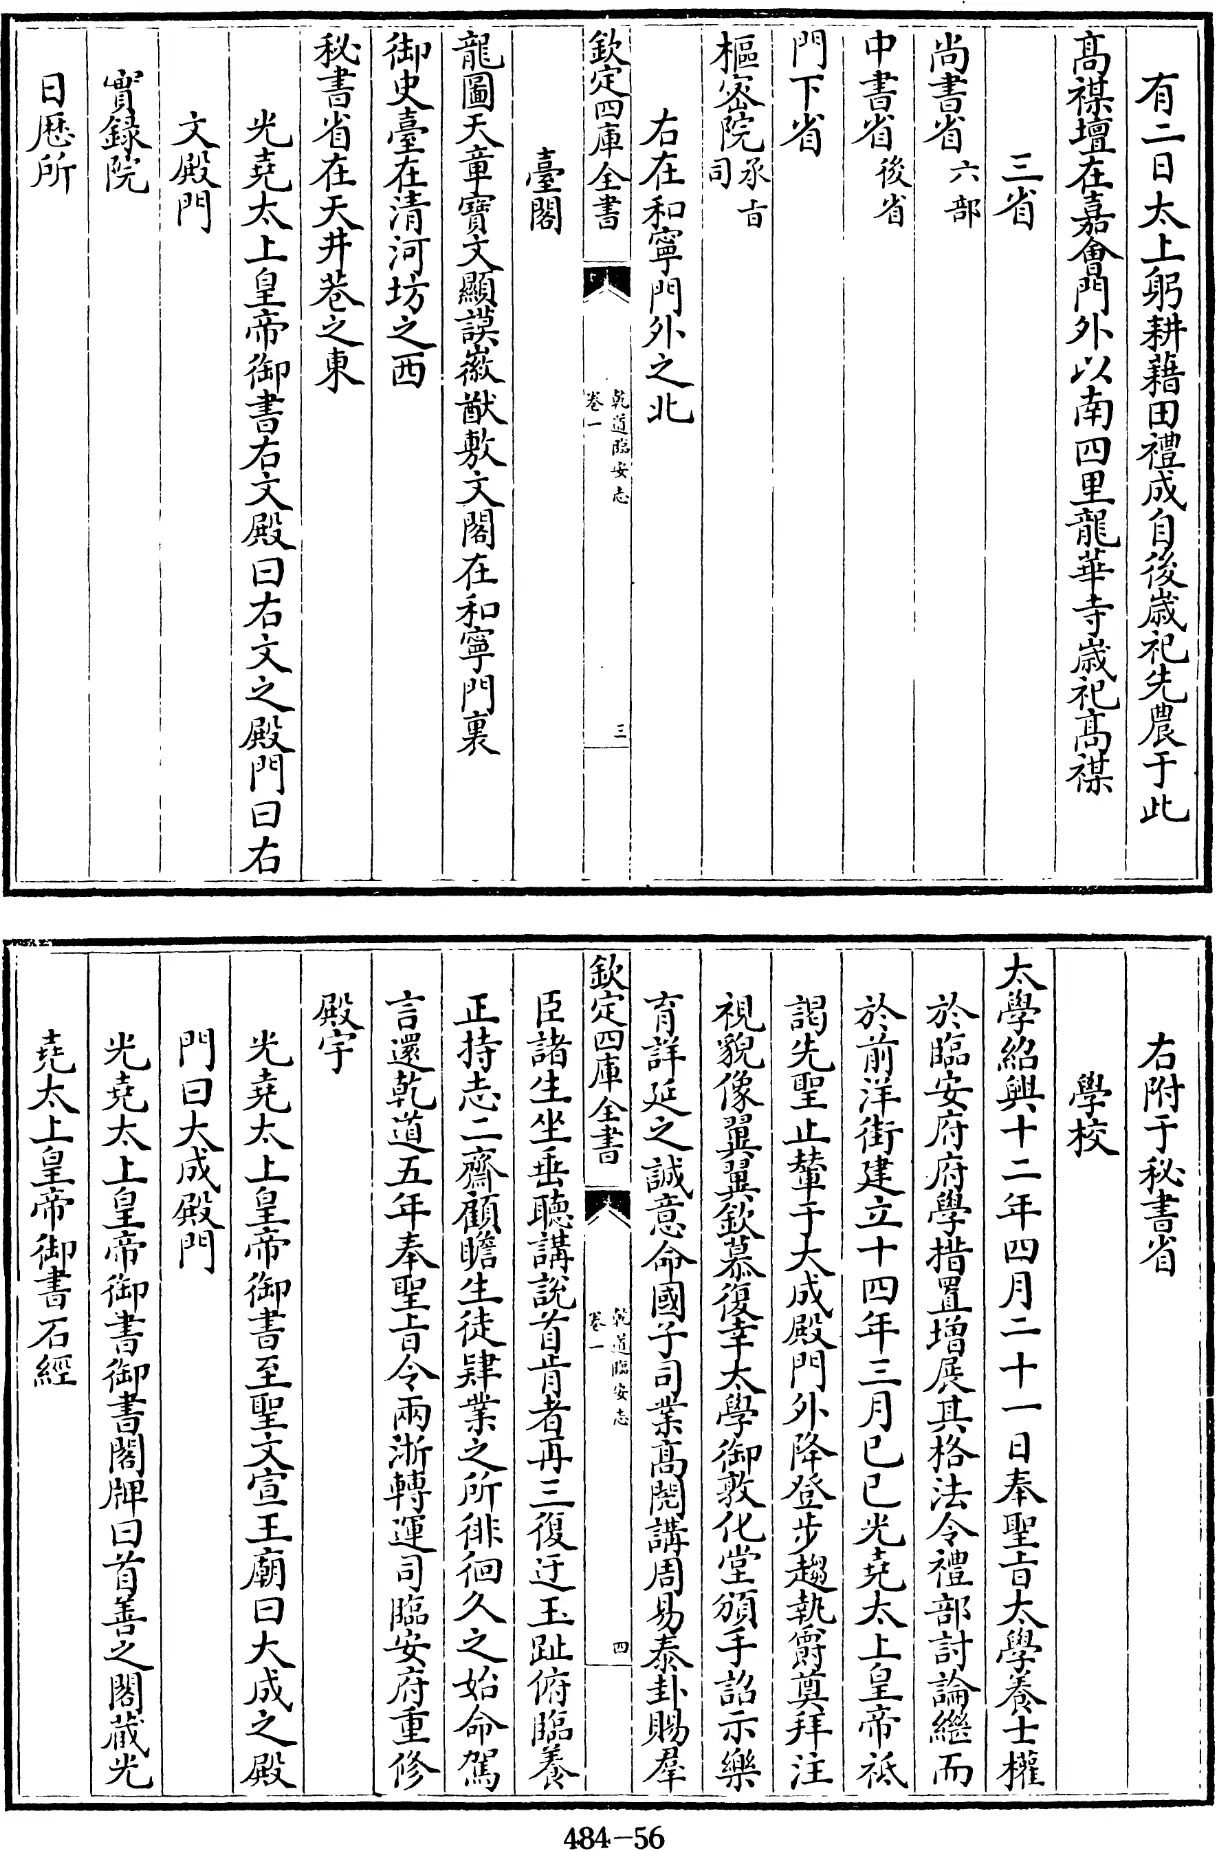 有二日太上躬耕藉田禮成自後歲祀先農于此
高禖壇在嘉會門外以南四里龍華寺歲祀高禖
三省
尚書省六部
中書省後省
門下省
樞密院承旨司
右在和寧門外之北
欽定四庫全書
乾道臨安志
卷一
三
臺閣
龍圖天章寶文顯謨徽猷敷文閣在和寧門裏
御史臺在清河坊之西
秘書省在天井巷之東
光堯太上皇帝御書右文殿曰右文之殿門曰右
文殿門
實錄院
日厯所
右附于秘書省
學校
太學紹興十二年四月二十一日奉聖旨太學養士權
於臨安府府學措置增展其格法令禮部討論繼而
於前洋街建立十四年三月己巳光堯太上皇帝祗
謁先聖止輦于大成殿門外降登步趨執爵奠拜注
視貌像翼翼欽慕復幸太學御敦化堂頒手詔示樂
育詳延之誠意命國子司業高閌講周易泰卦賜羣
欽定四庫全書
乾道臨安志
卷一
四
臣諸生坐垂聽講說首肯者再三復迂玉趾俯臨養
正持志二齋顧瞻生徒肄業之所徘徊久之始命駕
言還乾道五年奉聖旨令兩浙轉運司臨安府重修
殿宇
光堯太上皇帝御書至聖文宣王廟曰大成之殿
門曰大成殿門
光堯太上皇帝御書御書閣牌曰首善之閣藏光
堯太上皇帝御書石經
484-56